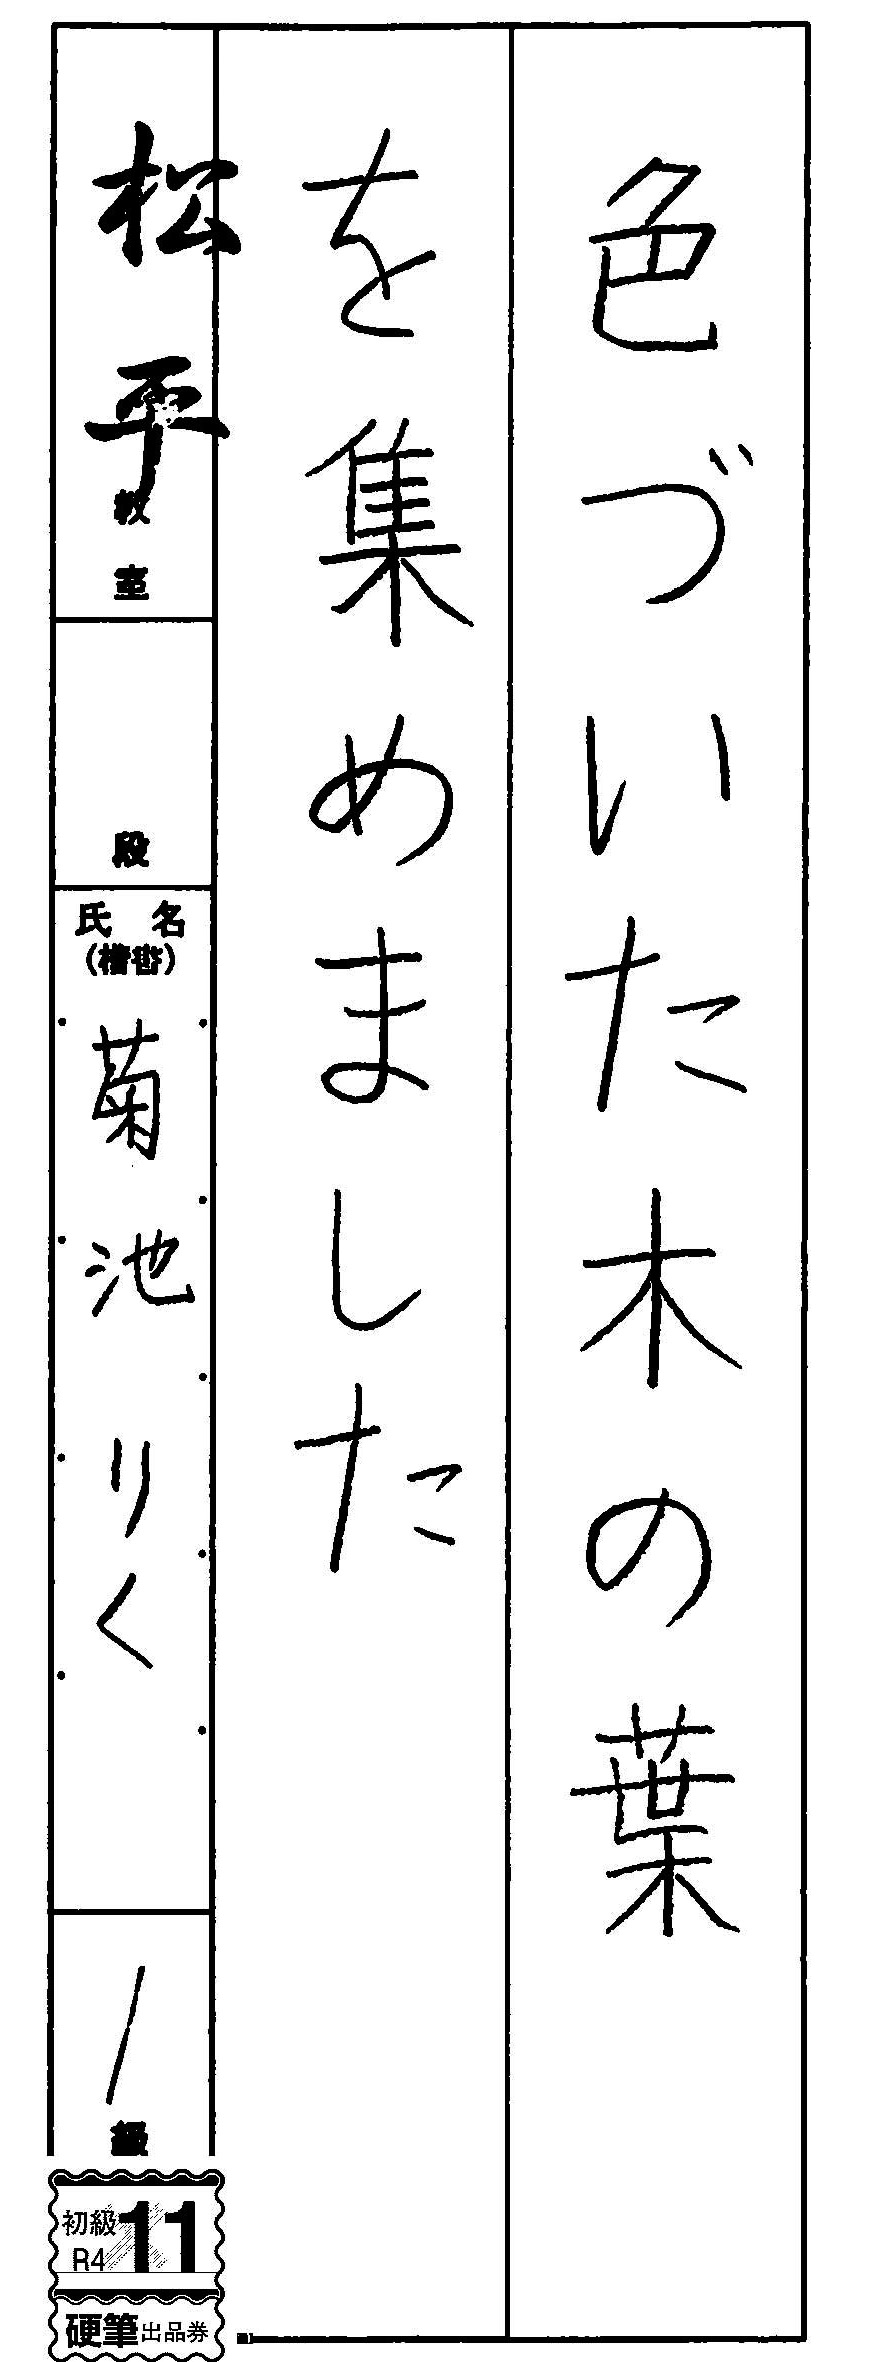 色づいた木の葉
を集めました
松平教室
段
氏名
(楷書)
菊池りく
1級
初級
R4
11
硬筆出品券